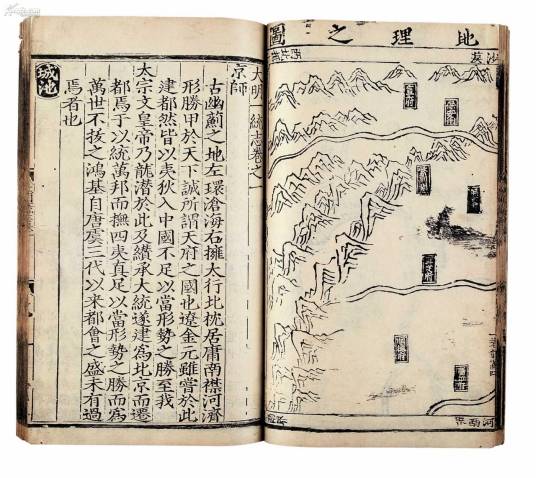 地理之圖
河南界
大明一統志卷之一
京師
古幽薊之地左環滄海右擁太行北枕居庸南襟河濟
形勝甲於天下誠所謂天府之國也遼金元雖嘗於此
建都然皆以夷狄入中國不足以當形勢之勝至我
太宗文皇帝乃龍潛於此及纘承大統遂建為北京而遷
都焉于以統萬邦而撫四夷真足以當形勢之勝而為
萬世不拔之鴻基自唐虞三代以來都會之盛未有過
焉者也
城池